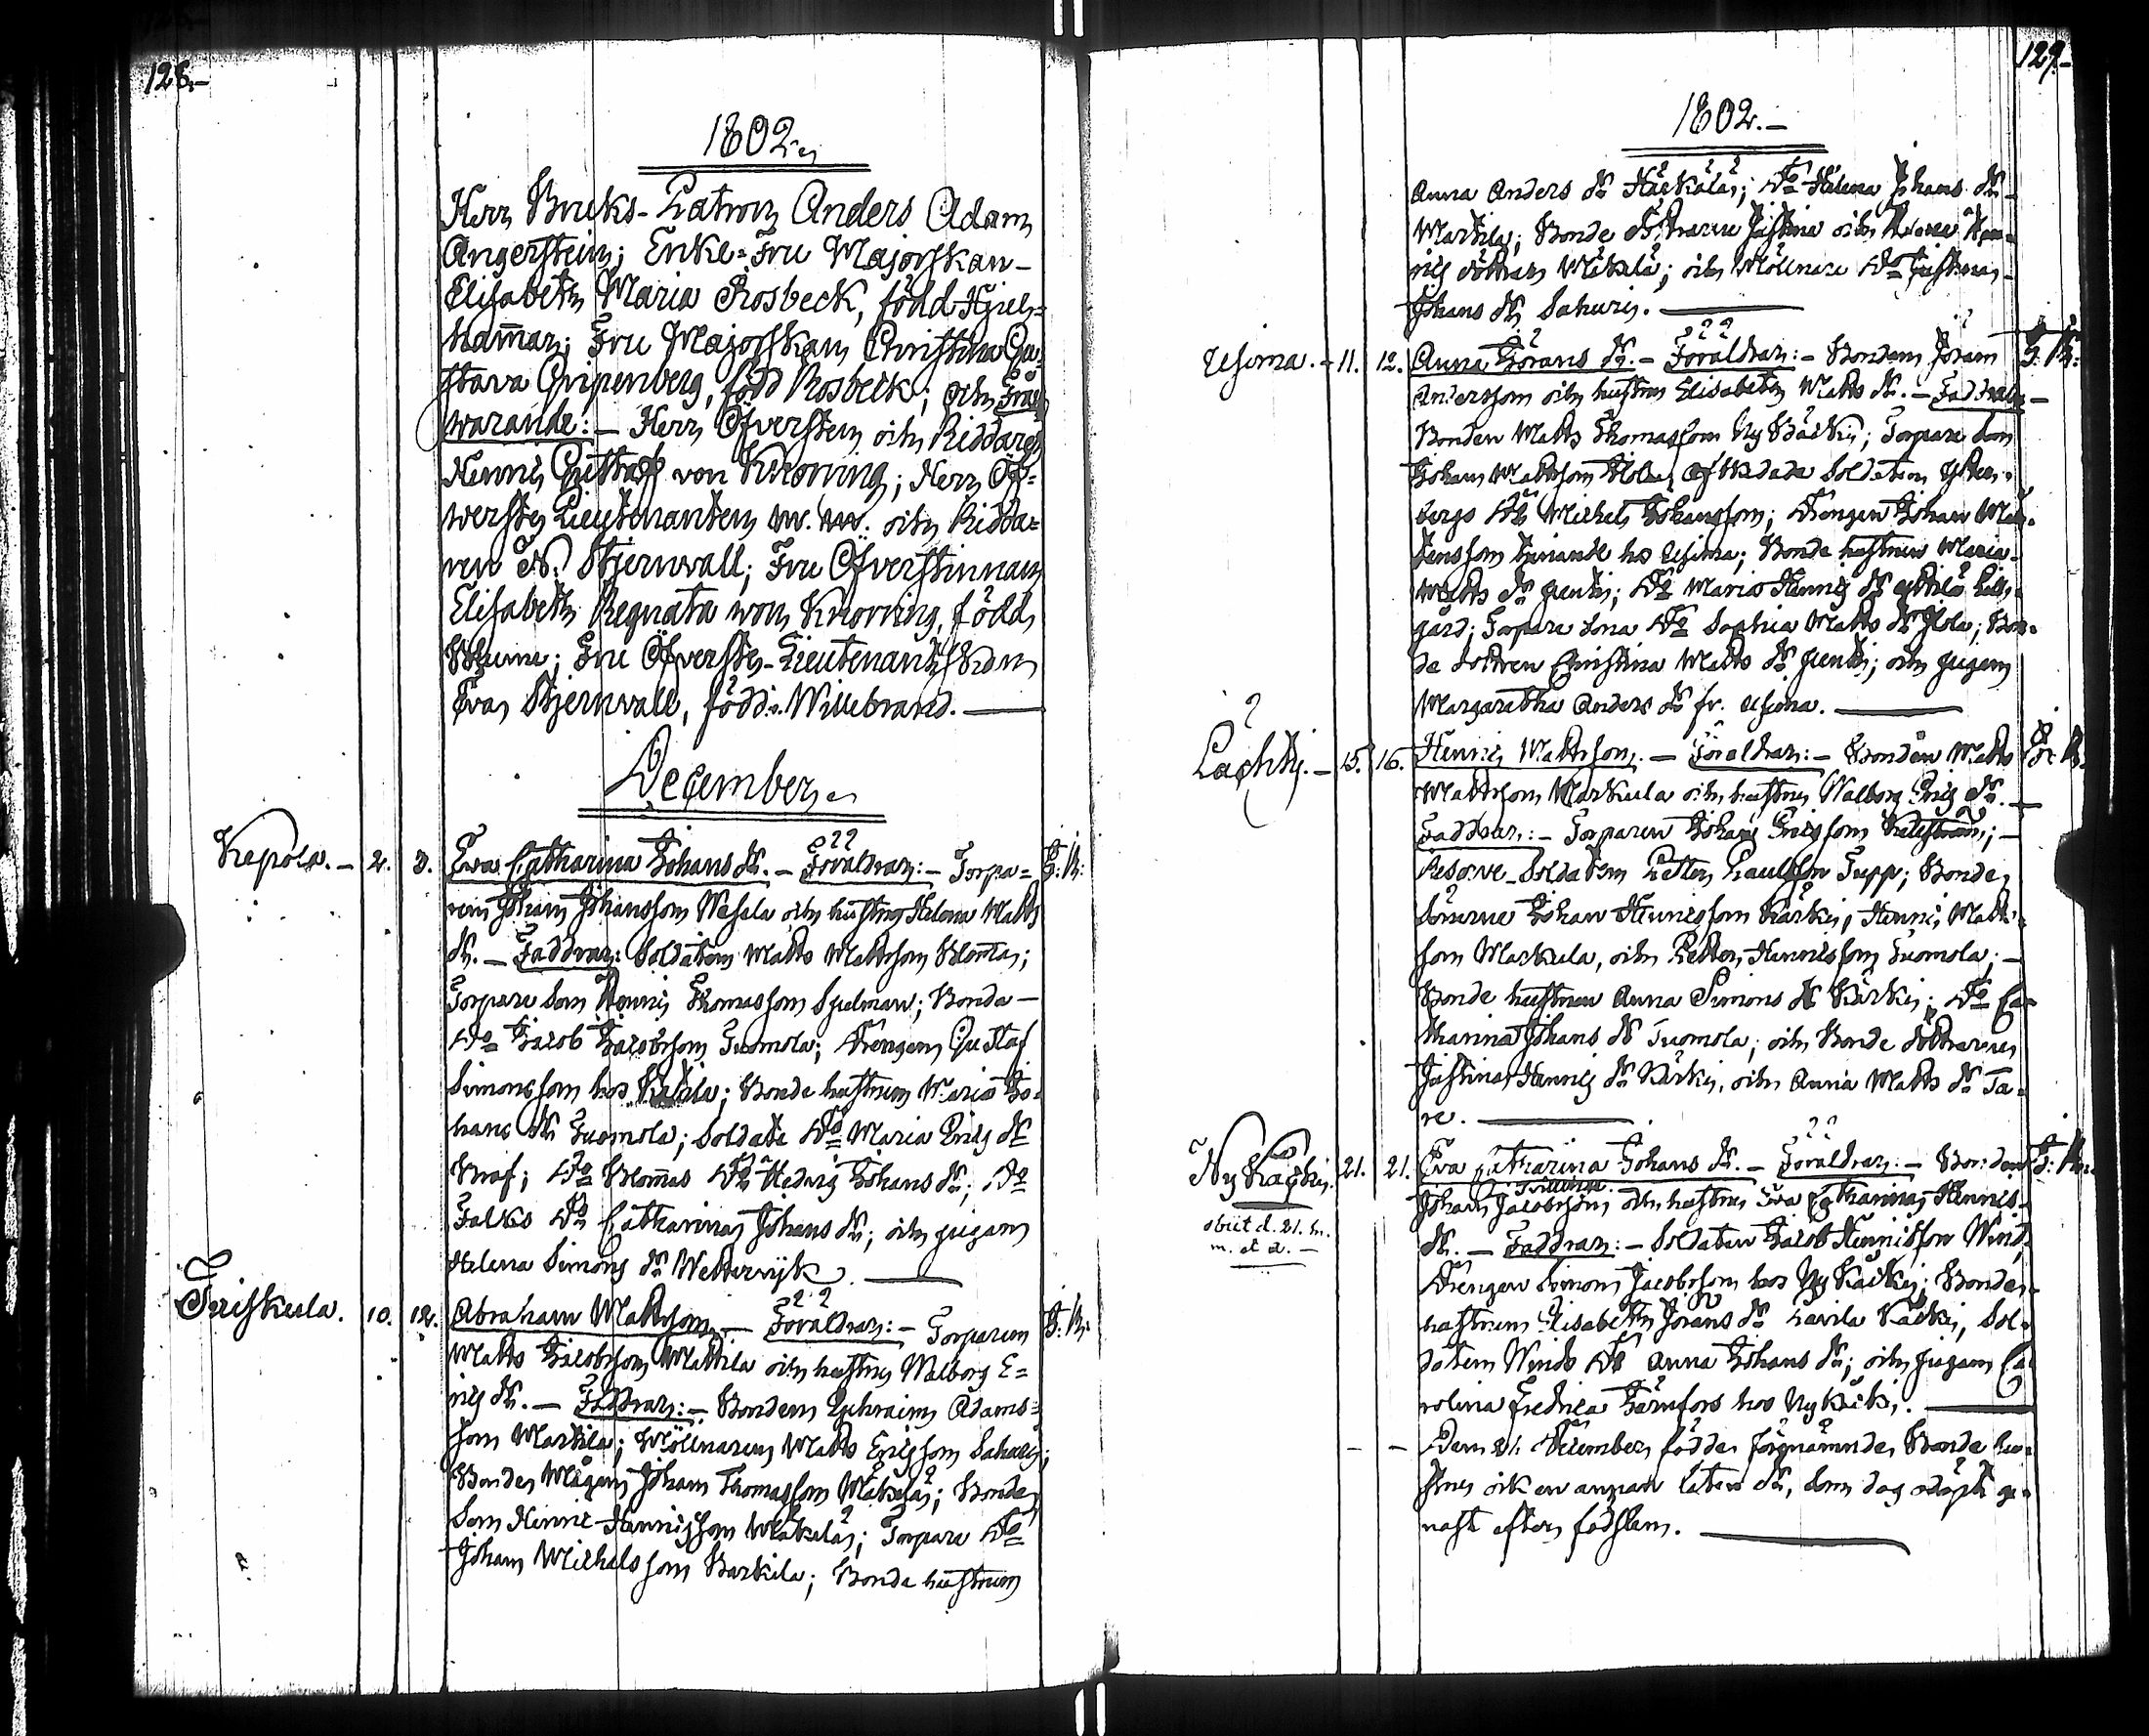 128.-
1802.
Herr Bruks-Patron Anders Adam
Angerstein; Enke-Fru Majorskan
Elisabeth Maria Rosbeck, född Hjelm=
hammar; Fru Majorskan Christina Gu=
stava Gripenberg, född Rosbeck; och Från
warande:- Herr Öfversten och Riddaren
Henric Gustaff von Knorring; Herr Öf=
werste Lieutenanten och Ridda=
ren Stjernvall; Fru Öfverstinnan
Elisabeth Regnata von Knorring, född
Fru Öfverste-Lieutenantskan
Eva Stjernvall, född v. Willebrand.
December
Kepola. - 2. 3. Eva Catharina Johans dr. - Föräldrar:- Torpa=
ren Johan Johansson Wesala och hustru Helena Matts
dr. - Faddrar: Soldaten Matts Mattsson Blomas;
Torpare Son Henric Thomasson Spelman; Bonde-
Do Jacob Jacobsson Tuomola; Drengen Gustaf
Simonsson hos Bonde hustrun Maria Jo=
hans dr Tuomola; Soldate Do Maria Erics dr
Braf; Do Blomas Do Hedvig Johans dr; Do
Falks Do Catharina Johans dr; och pigan
Helena Simons dr Wetterwijk.
Friskula. 10. 12. Abraham Mattsson. - Föräldrar:- Torparen
Matts Jacobsson Mattila och hustru Walborg E=
rics dr. - Faddrar:- Bonden Ephraim Adams=
son Markila; Möllnaren Matts Ericsson Sahuri;
Bonde Mågen Johan Thomasson Mäkelä; Bonde
Son Henric Henricsson Mäkelä; Torpare Do
Johan Michelsson Barkila; Bonde hustrun
129.-
1802.-
Anna Anders dr Do Helena Johans dr
Markila; Bonde döttrarne Justina och Hen=
rics döttrar Mäkelä; och Möllnare Do Justina
Johans dr Sahuri.
Uhima. - 11. 12. Anna Görans dr. - Föräldrar:- Bonden Göran
Andersson och hustru Elisabeth Matts dr. - Faddrar -
Bonden Matts Thomasson Ny Käcki; Torpare Son
Johan Mattsson afskedade Soldaten
bergs Do Michel Johansson; Drengen Johan Mår=
tensson tjenande hos Uhima; Bonde hustrun Maria
Matts dr Pentti; Do Maria Henrics dr
gård; Torpare Sona Do Sophia Matts dr Bon=
de dottren Christina Matts dr Pentti; och pigan
Margaretha Anders dr fr. Uhima.
Lachty. - 15. 16. Henric Mattsson. - Föräldrar:- Bonden Matts
Mattsson Markula och hustru Walborg Erics dr. -
Faddrar:- Torparen Johan Ericsson
Reserve-Soldaten Petter Paulsson Tupp; Bonde
Sönerne Johan Henricsson Kärki, Henric Matts=
son Markula, och Petter Henricsson Tuomola; -
Bonde hustrun Anna Simons dr Kärki; Do Ca=
tharina Johans dr Tuomola; och Bonde döttrarne
Justina Henrics dr Kärki, och Anna Matts dr Ta=
re.
Ny Käcki. 21. 21. Eva Catharina Johans dr. - Föräldrar:- Bonden
obiit d. 21. h.
m. et a. -
Tvilling.
Johan Jacobsson, och hustru Eva Catharina Henrics
dr. - Faddrar:- Soldaten Jacob Henricsson Wind,
Drengen Simon Jacobsson hos Ny Käcki; Bonde
hustrun Elisabeth Görans dr Lavila Käcki, Sol=
daten Winds Do Anna Johans dr; och pigan Ca
rolina Fredrica Järnfors hos Ny Käcki.
- - Dem 21. December födde förenämnde Bonde hu=
stru ock en annan liten dr, som dog odöpt ge=
nast efter födslen.